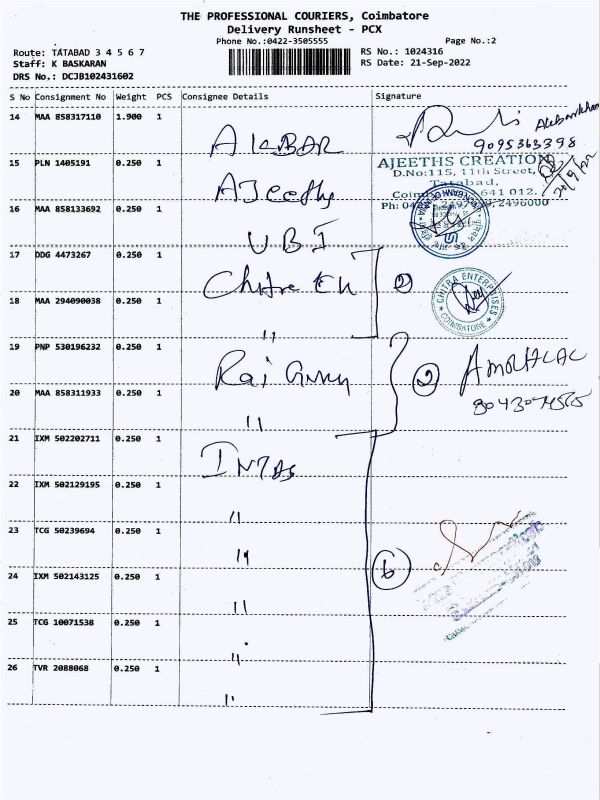 THE PROFESSIONAL COURIERS, Coimbatore
Delivery Runsheet - PCX
Phone No.:0422-3505555
Page No.:2
Route: TATABAD 3 4 5 6 7
RS No.: 1024316
Staff: K BASKARAN
RS Date: 21-Sep-2022
DRS No.: DCJB102431602
S No Consignment No Weight PCS Consignee Details Signature
14 MAA 858317110 1.900 1 AKBAR
9095363398
15 PLN 1405191 0.250 1 AJeeths
AJEETHS CREATION
D.No:115, 11th Street,
Tatabad,
641 012.
16 MAA 858133692 0.250 1 UBI
17 DDG 4473267 0.250 1
18 MAA 294090038 0.250 1 "
CHITRA ENTERPRISES
COIMBATORE
19 PNP 530196232 0.250 1 Rai
20 MAA 858311933 0.250 1 "
21 IXM 502202711 0.250 1 INTAS
22 IXM 502129195 0.250 1 "
23 TCG 50239694 0.250 1 "
6
24 IXM 502143125 0.250 1 "
25 TCG 10071538 0.250 1 "
26 TVR 2088068 0.250 1 "